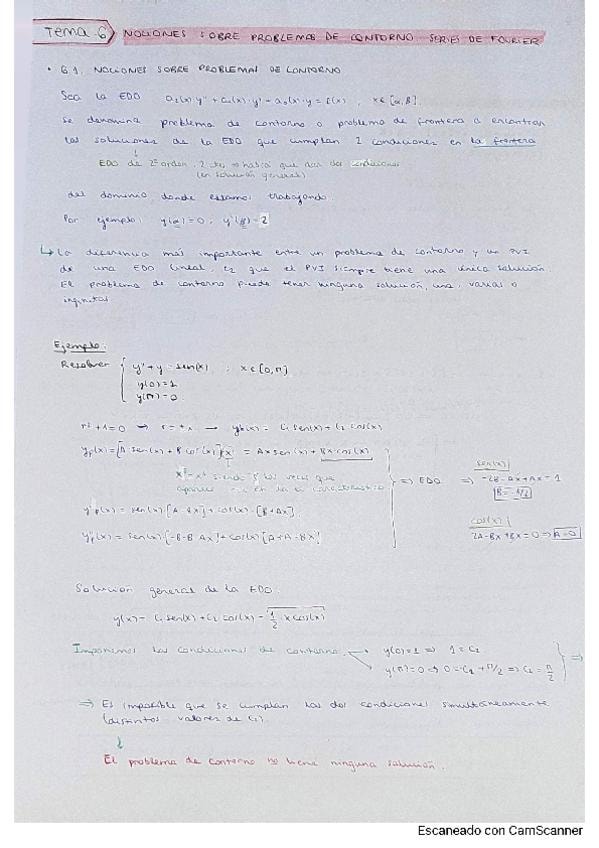 Tema 6 NOCIONES SOBRE PROBLEMAS DE CONTORNO. SERIES DE FOURIER
• 6.1. NOCIONES SOBRE PROBLEMAS DE CONTORNO
Sea la EDO a₂(x)·y'' + a₁(x)·y' + a₀(x)·y = f(x), x∈[α,β].
Se denomina problema de contorno o problema de frontera a encontrar
las soluciones de la EDO que cumplan 2 condiciones en la frontera
EDO de 2º orden, 2 ctes ⇒ habrá que dar dos condiciones
(en solución general)
del dominio donde estamos trabajando.
Por ejemplo: y(α)=0; y'(β)=2
↳ La diferencia más importante entre un problema de contorno y un PVI
de una EDO lineal, es que el PVI siempre tiene una única solución.
El problema de contorno puede tener ninguna solución, una, varias o
infinitas
Ejemplo:
Resolver { y''+y = sen(x) ; x∈[0,π]
y(0)=1
y(π)=0
r²+1=0 → r=±i → yh(x) = C₁ sen(x) + C₂ cos(x)
yp(x)=[A·sen(x)+B cos(x)]·x = Ax sen(x) + Bx cos(x)
siendo las veces que
aparece en la
y'p(x) = sen(x)·[A-Bx] + cos(x)·[B+Ax]
y''p(x) = sen(x)·[-B-B-Ax] + cos(x)[A+A-Bx]
⇒ EDO ⇒
sen(x)
-2B-Ax+Ax=1
B=-1/2
cos(x)
2A-Bx+Bx=0 ⇒ A=0
Solución general de la EDO:
y(x) = C₁ sen(x) + C₂ cos(x) - 1/2 x cos(x)
Imponemos las condiciones de contorno → y(0)=1 ⇒ 1=C₂
y(π)=0 ⇒ 0=-C₂+π/2 ⇒ C₂=π/2 } ⇒
⇒ Es imposible que se cumplan las dos condiciones simultáneamente
(distintos valores de C₂).
↓
El problema de contorno no tiene ninguna solución.
Escaneado con CamScanner